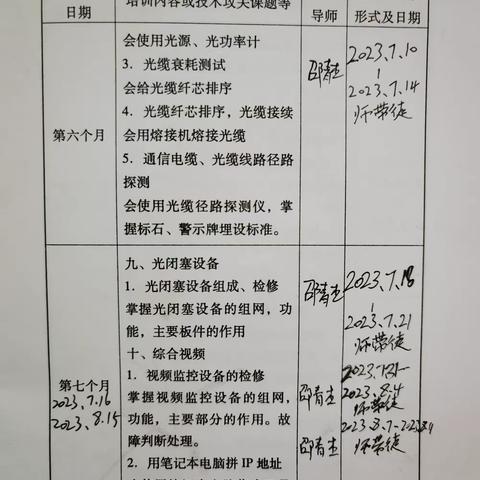 日期
培训内容或技术攻关课题等
导师
形式及日期
第六个月
会使用光源、光功率计
3. 光缆衰耗测试
会给光缆纤芯排序
4. 光缆纤芯排序，光缆接续
会用熔接机熔接光缆
5. 通信电缆、光缆线路径路
探测
会使用光缆径路探测仪，掌
握标石、警示牌埋设标准。
邵青杰
2023、7、10
2023、7、14
师带徒
第七个月
2023、7.16
2023、8.15
九、光闭塞设备
1. 光闭塞设备组成、检修
掌握光闭塞设备的组网，功
能，主要板件的作用
十、综合视频
1. 视频监控设备的检修
掌握视频监控设备的组网，
功能，主要部分的作用。故
障判断处理。
2. 用笔记本电脑拼 IP 地址
邵青杰
邵青杰
邵青杰
2023、7、18
2023、7、21
师带徒
2023、8.4
师带徒
师带徒